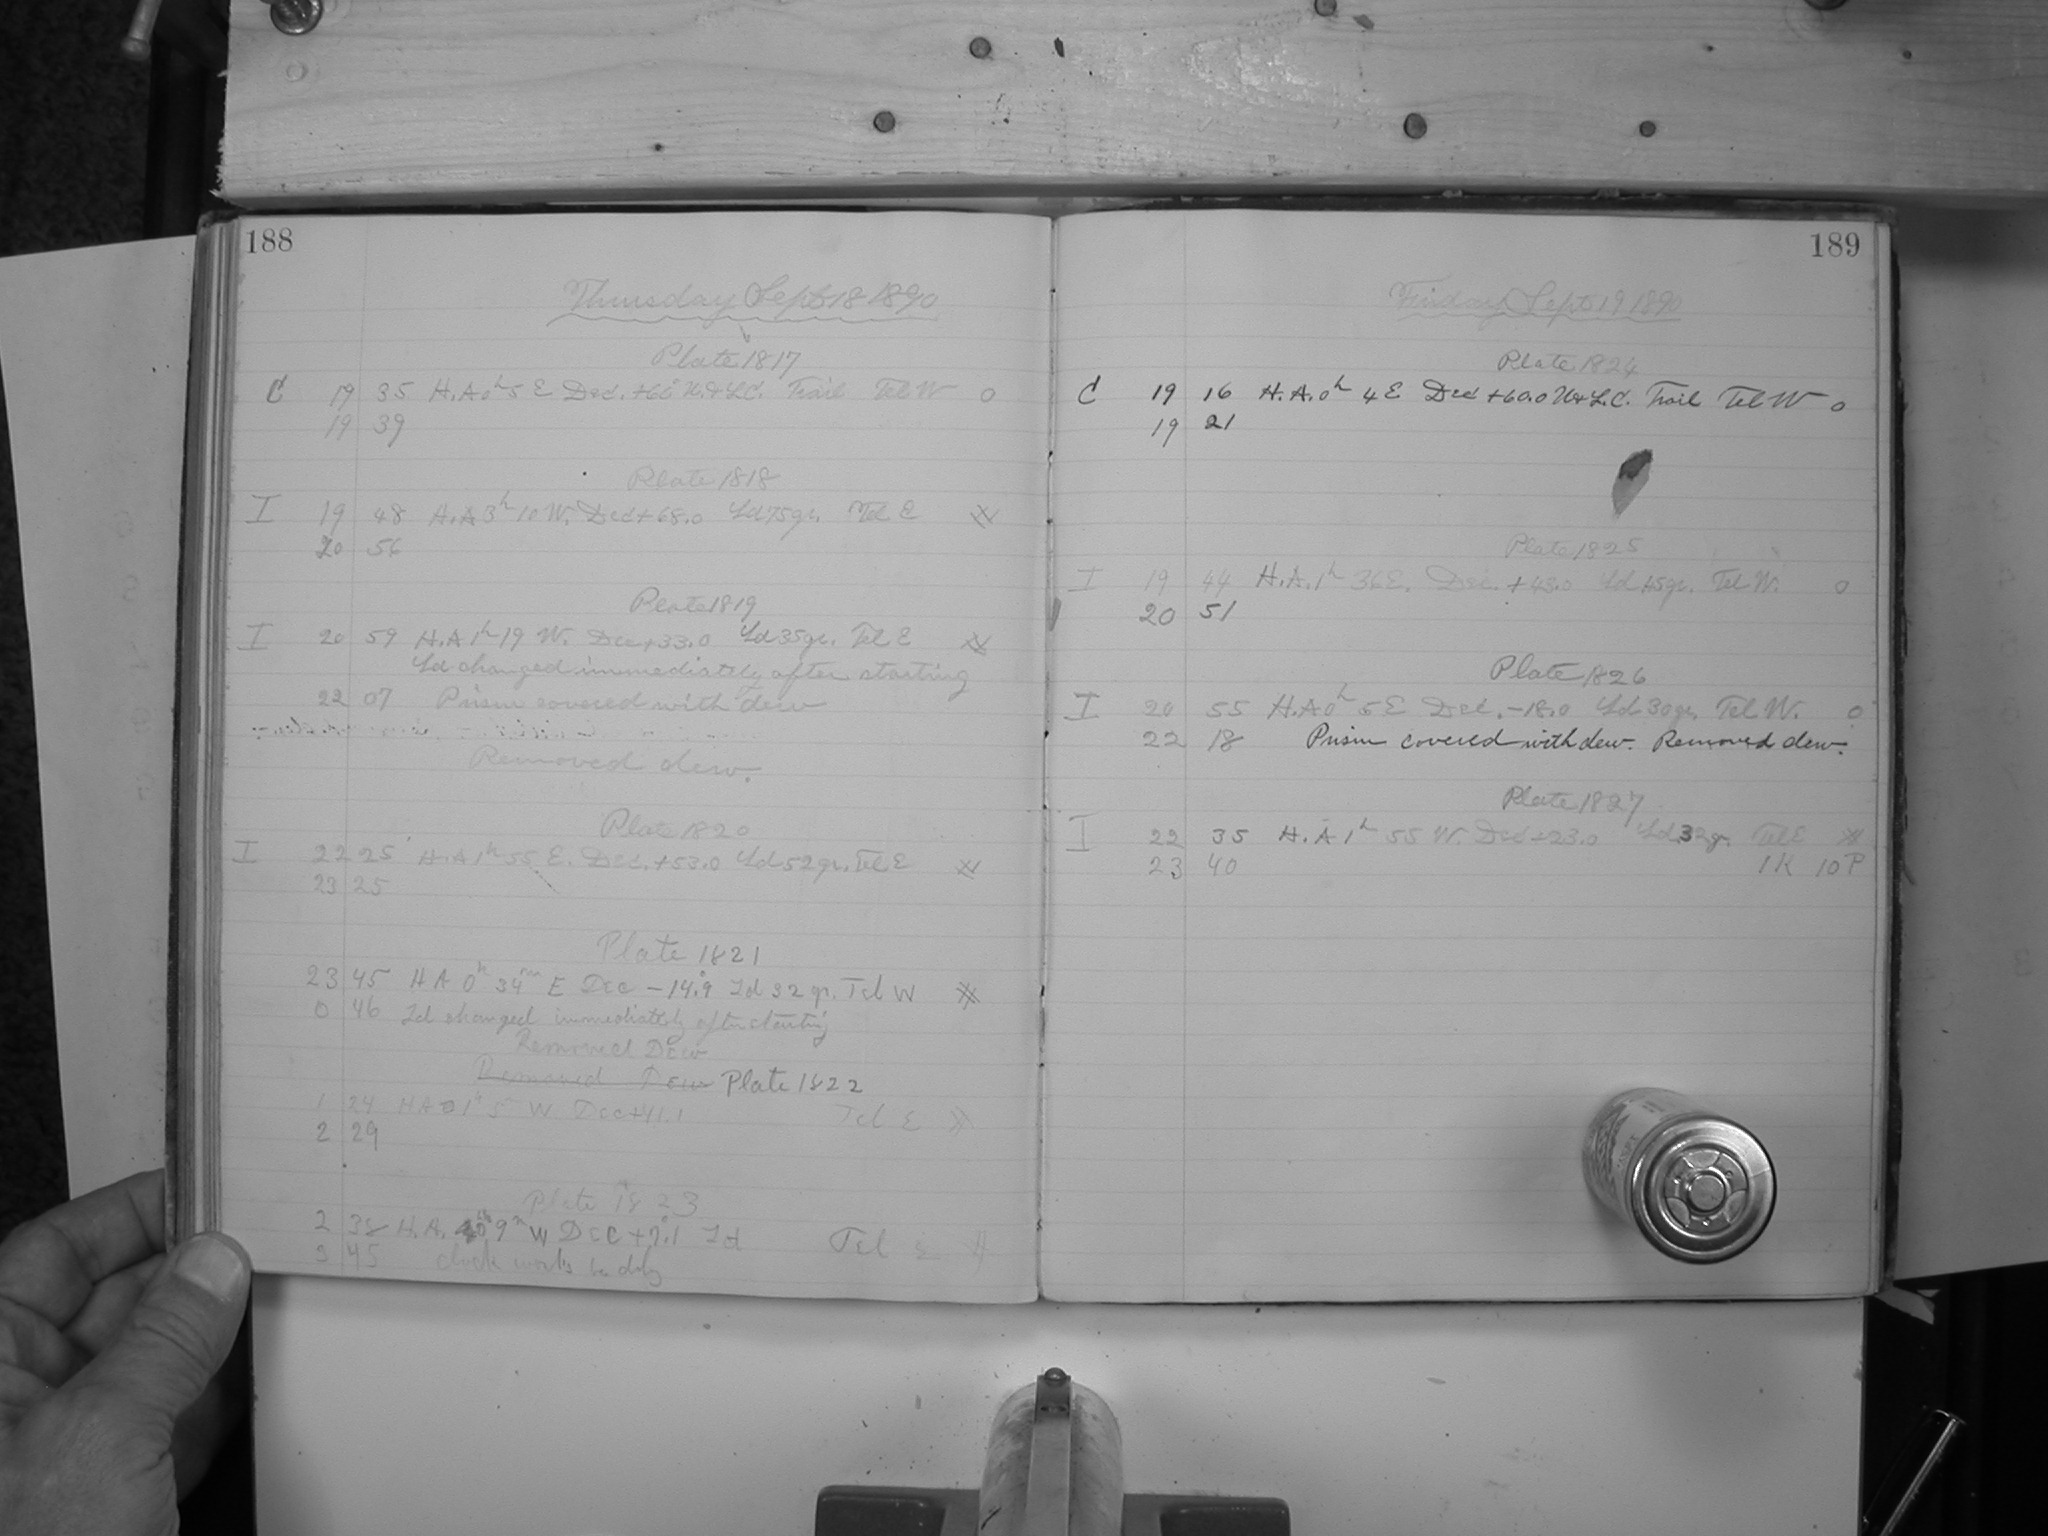 188
Thursday Sept 18 1890
Plate 1817
C 19 35 H.A 0h 5 E Dec. +60 U.&L.C. Trail Tel W 0
19 39
Plate 1818
I 19 48 H.A 3h 10 W. Dec +68.0 Ld 75gr. Tel E
20 56
Plate 1819
I 20 59 H.A 1h 19 W. Dec +33.0 Ld 35gr. Tel E
Ld changed immediately after starting
22 07 Prism covered with dew
Removed dew.
Plate 1820
I 22 25 H.A 1h 55 E. Dec. +53.0 Ld 52gr. Tel E
23 25
Plate 1821
23 45 HA 0h 34m E Dec -14.9 Ld 32 gr. Tel W
0 46 Ld changed immediately after starting
Removed Dew
Removed Dew Plate 1822
1 24 HA 1h 5 W Dec +41.1 Tel E
2 29
Plate 1823
2 38 H.A. 9m W Dec +7.1 Ld Tel E
3 45 clock works badly
189
Friday Sept 19 1890
Plate 1824
C 19 16 H.A. 0h 4 E Dec +60.0 U&L.C. Trail Tel W 0
19 21
Plate 1825
I 19 44 H.A. 1h 36 E. Dec. +43.0 Ld 45gr. Tel W. 0
20 51
Plate 1826
I 20 55 H.A 0h 5 E Dec. -18.0 Ld 30gr. Tel W. 0
22 18 Prism covered with dew. Removed dew.
Plate 1827
I 22 35 H.A 1h 55 W. Dec +23.0 Ld 32gr. Tel E
23 40 1K 10P